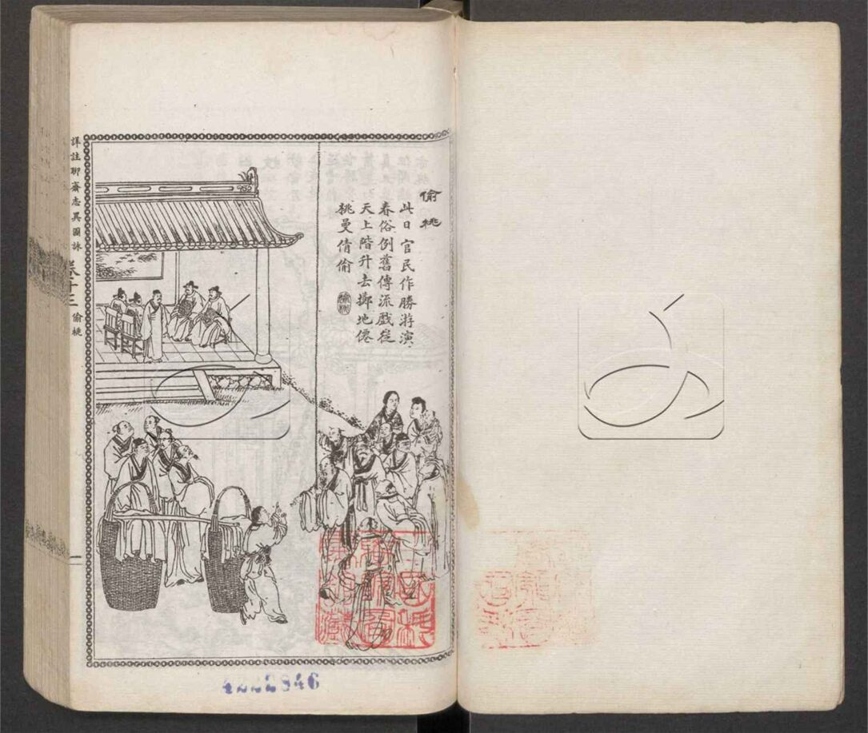 偷桃
此日官民作勝游演
春俗例舊傳流戲從
天上階升去擲地僊
桃曼倩偷
詳註聊齋志異圖詠
卷十三
偷桃
4222846